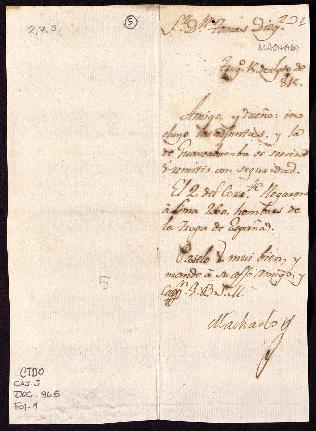 5
Sr. Dn. Tomas Diez
MACHADO
de
815.
Amigo, y dueño: in
cluyo las adjuntas, y la
de Huancavelica se servirá
V. remitir con seguridad.
El 2. del Corrte. llegaron
à Lima 260. hombres de
la tropa de España.
Paselo V. mui bien, y
mande à su affo. amigo, y
Q. B. S. M.
Machado
5
CTDO
CAJ. 3
DOC. 965
FOJ-1